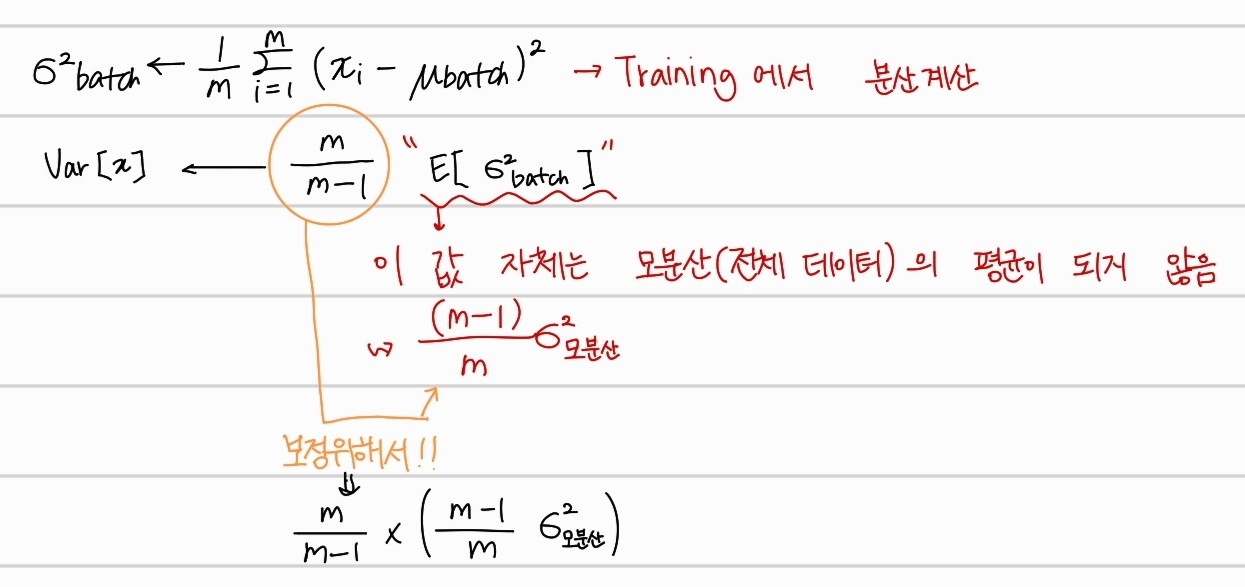 σ²batch ← 1/m Σ_{i=1}^{m} (x_i − μbatch)² → Training 에서 분산계산
Var[x] ← m/(m−1) "E[σ²batch]"
이 값 자체는 모분산(전체 데이터)의 평균이 되게 않음
↝ (m−1)/m σ²모분산
보정위해서!!
⇓
m/(m−1) × ((m−1)/m σ²모분산)